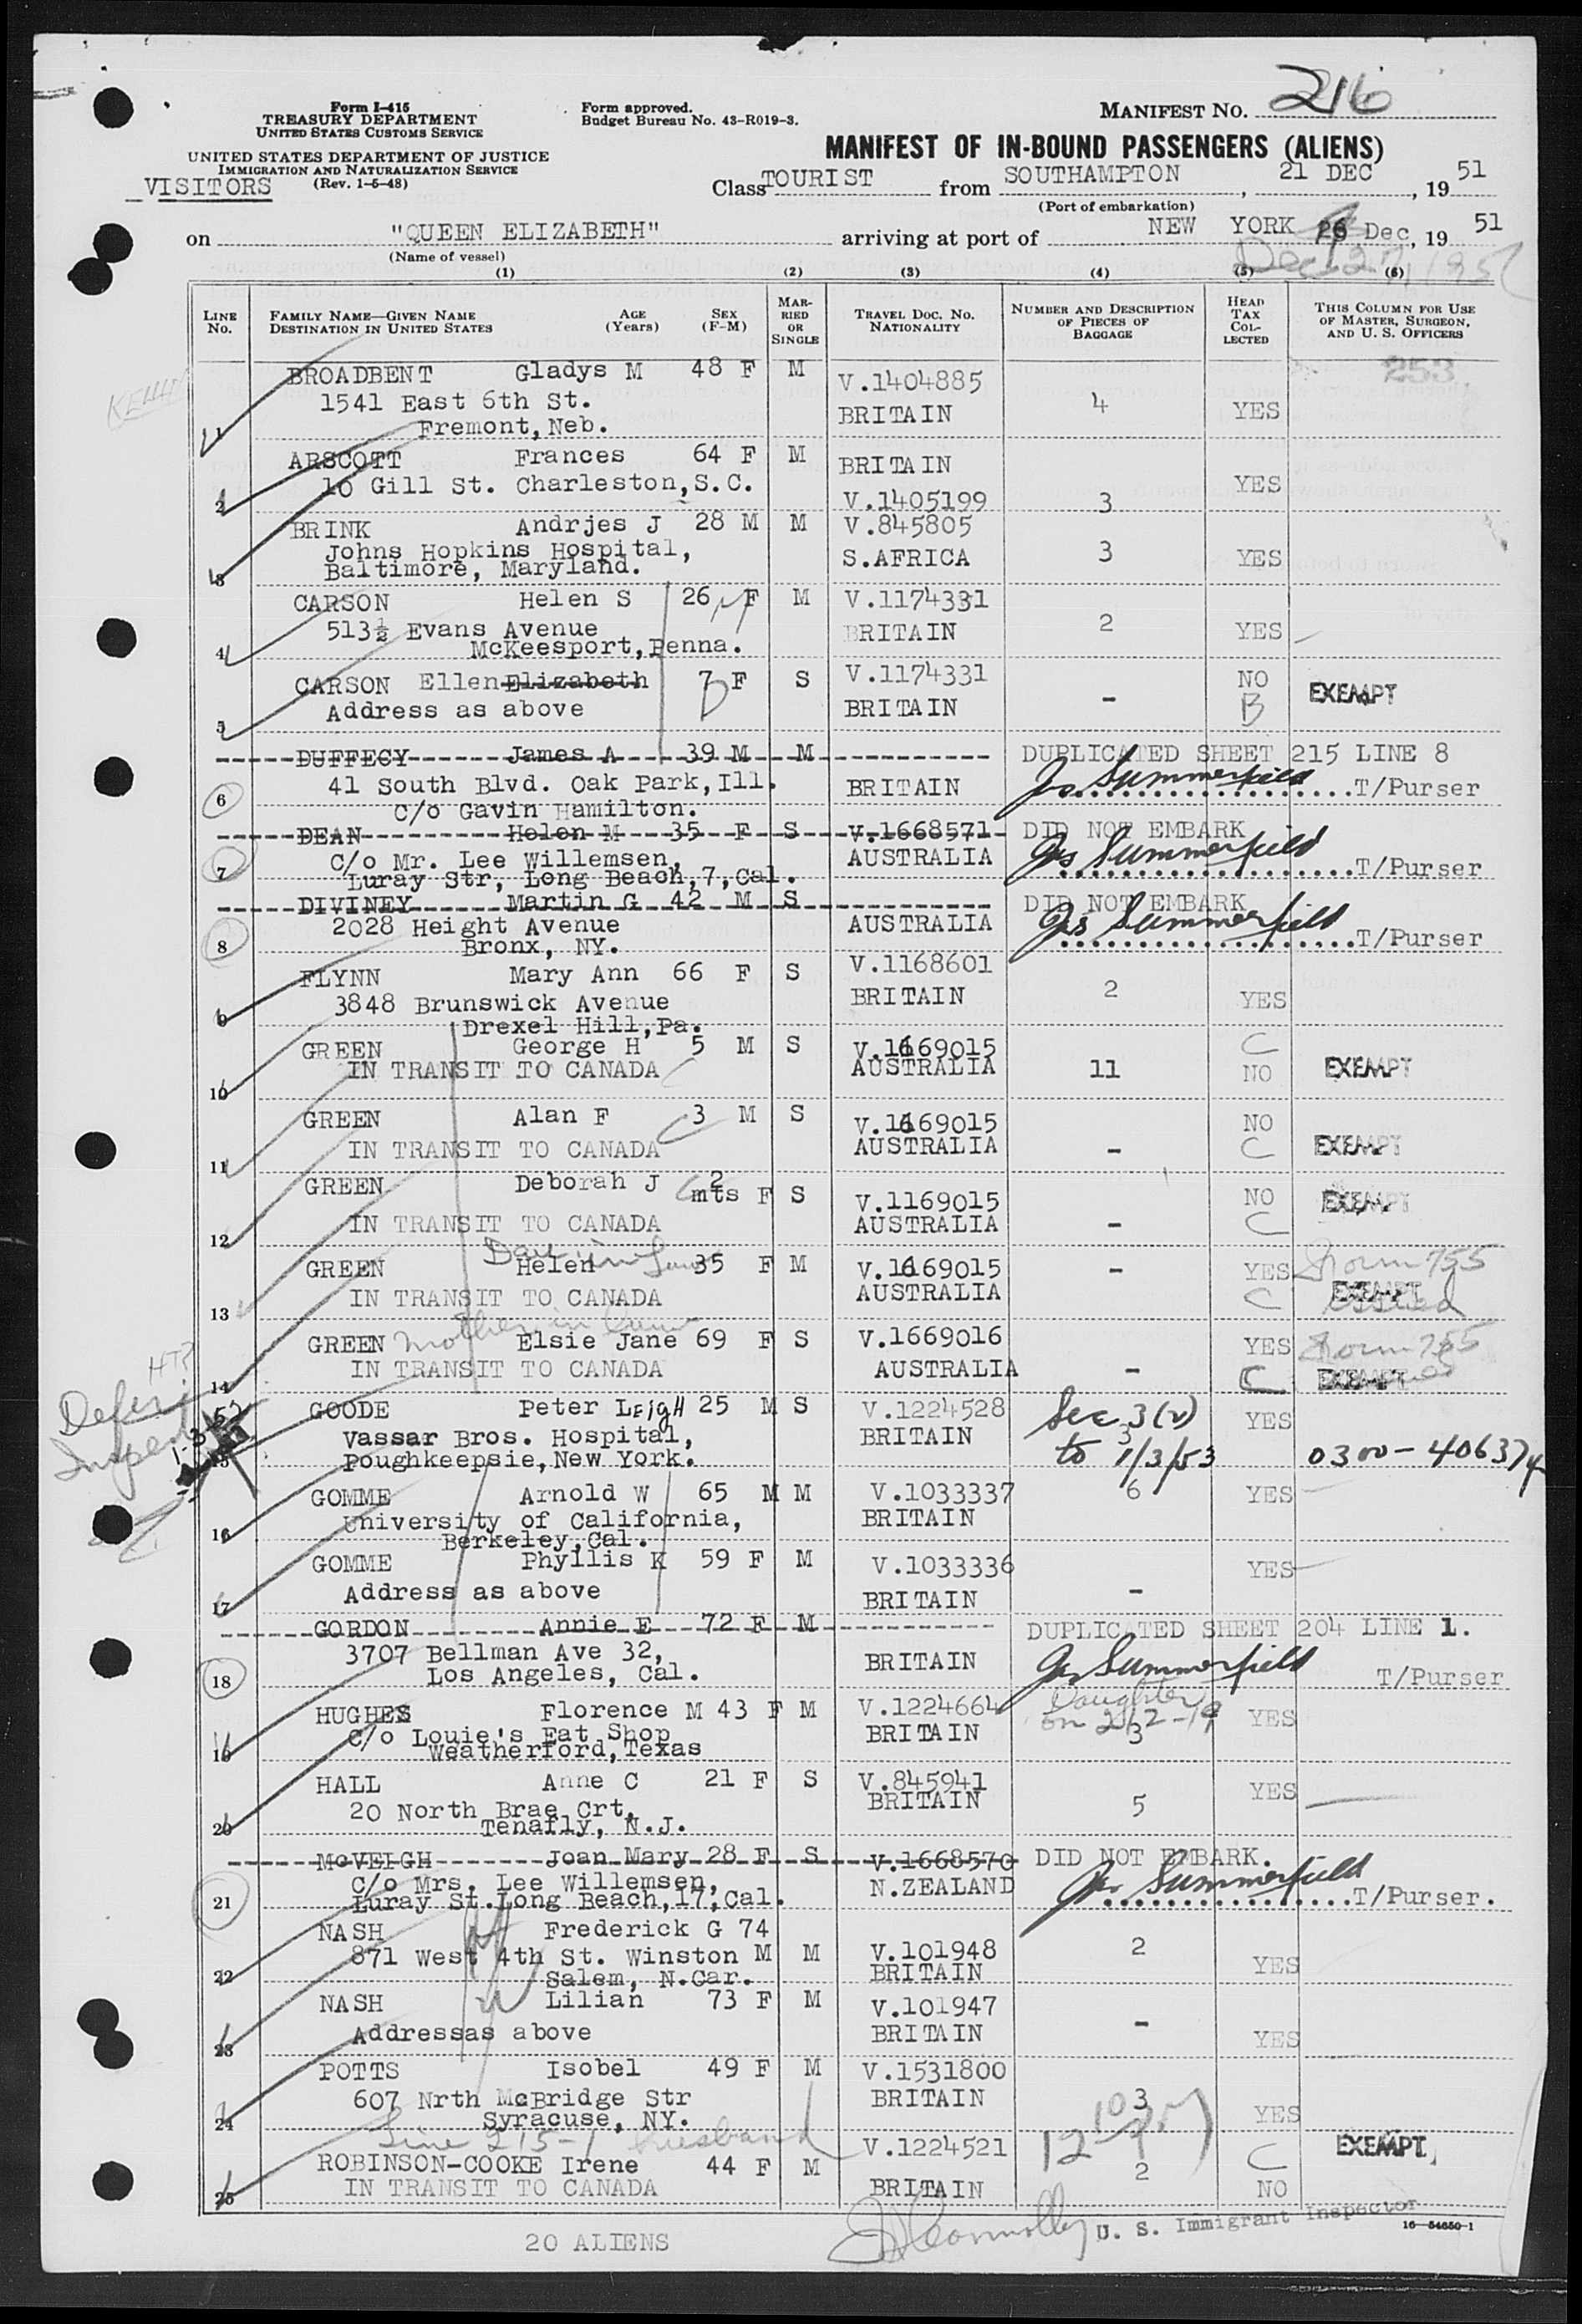 Form I-415
TREASURY DEPARTMENT
UNITED STATES CUSTOMS SERVICE
UNITED STATES DEPARTMENT OF JUSTICE
IMMIGRATION AND NATURALIZATION SERVICE
(Rev. 1-5-48)
VISITORS
Form approved.
Budget Bureau No. 43-R019-3.
MANIFEST NO. 216
MANIFEST OF IN-BOUND PASSENGERS (ALIENS)
Class TOURIST from SOUTHAMPTON, 21 DEC, 1951
(Port of embarkation)
on "QUEEN ELIZABETH" arriving at port of NEW YORK 26 Dec, 1951
(Name of vessel)
Dec 27, 1951
(1) (2) (3) (4) (5) (6)
LINE NO. FAMILY NAME—GIVEN NAME DESTINATION IN UNITED STATES AGE (Years) SEX (F-M) MARRIED OR SINGLE TRAVEL DOC. NO. NATIONALITY NUMBER AND DESCRIPTION OF PIECES OF BAGGAGE HEAD TAX COLLECTED THIS COLUMN FOR USE OF MASTER, SURGEON, AND U. S. OFFICERS
253
1 BROADBENT Gladys M 48 F M V.1404885
1541 East 6th St. BRITAIN 4 YES
Fremont, Neb.
2 ARSCOTT Frances 64 F M BRITAIN
10 Gill St. Charleston, S.C. V.1405199 3 YES
3 BRINK Andrjes J 28 M M V.845805
Johns Hopkins Hospital, S.AFRICA 3 YES
Baltimore, Maryland.
4 CARSON Helen S 26 F M V.1174331
513½ Evans Avenue BRITAIN 2 YES
McKeesport, Penna.
5 CARSON Ellen Elizabeth 7 F S V.1174331 NO
Address as above BRITAIN - B EXEMPT
6 DUFFECY James A 39 M M DUPLICATED SHEET 215 LINE 8
41 South Blvd. Oak Park, Ill. BRITAIN Jas Summerfield T/Purser
C/o Gavin Hamilton.
7 DEAN Helen M 35 F S V.1668571 DID NOT EMBARK
C/o Mr. Lee Willemsen, AUSTRALIA Jas Summerfield T/Purser
Luray Str, Long Beach, 7, Cal.
8 DIVINEY Martin G 42 M S DID NOT EMBARK
2028 Height Avenue AUSTRALIA Jas Summerfield T/Purser
Bronx, NY.
9 FLYNN Mary Ann 66 F S V.1168601
3848 Brunswick Avenue BRITAIN 2 YES
Drexel Hill, Pa.
10 GREEN George H 5 M S V.1669015 C
IN TRANSIT TO CANADA AUSTRALIA 11 NO EXEMPT
11 GREEN Alan F 3 M S V.1669015 NO
IN TRANSIT TO CANADA AUSTRALIA - C EXEMPT
12 GREEN Deborah J 2 mts F S V.1169015 NO EXEMPT
IN TRANSIT TO CANADA AUSTRALIA - C
Dau in Law
13 GREEN Helen 35 F M V.1669015 - YES Form 755
IN TRANSIT TO CANADA AUSTRALIA C EXEMPT issued
14 GREEN Mother in Law Elsie Jane 69 F S V.1669016 YES Form 755
IN TRANSIT TO CANADA AUSTRALIA - C EXEMPT
15 GOODE Peter LEIGH 25 M S V.1224528 Sec 3(2) YES
Vassar Bros. Hospital, BRITAIN 3
Poughkeepsie, New York. to 1/3/53 0300-406374
16 GOMME Arnold W 65 M M V.1033337 6 YES
University of California, BRITAIN
Berkeley, Cal.
17 GOMME Phyllis K 59 F M V.1033336 YES
Address as above BRITAIN -
18 GORDON Annie E 72 F M DUPLICATED SHEET 204 LINE 1.
3707 Bellman Ave 32, BRITAIN Jas Summerfield T/Purser
Los Angeles, Cal.
19 HUGHES Florence M 43 F M V.1224664 Daughter YES
C/o Louie's Eat Shop BRITAIN on 212-19 3
Weatherford, Texas
20 HALL Anne C 21 F S V.845941 YES
20 North Brae Crt, BRITAIN 5
Tenafly, N.J.
21 McVEIGH Joan Mary 28 F S V.1668570 DID NOT EMBARK.
C/o Mrs. Lee Willemsen, N.ZEALAND Jas Summerfield T/Purser.
Luray St. Long Beach, 17, Cal.
22 NASH Frederick G 74
871 West 4th St. Winston M M V.101948 2 YES
Salem, N.Car. BRITAIN
23 NASH Lilian 73 F M V.101947
Addressas above BRITAIN - YES
24 POTTS Isobel 49 F M V.1531800
607 Nrth McBridge Str BRITAIN 3 YES
Syracuse, NY.
Line 215-1 husband
25 ROBINSON-COOKE Irene 44 F M V.1224521 C EXEMPT
IN TRANSIT TO CANADA BRITAIN 2 NO
20 ALIENS
Connolly U. S. Immigrant Inspector
16-54650-1